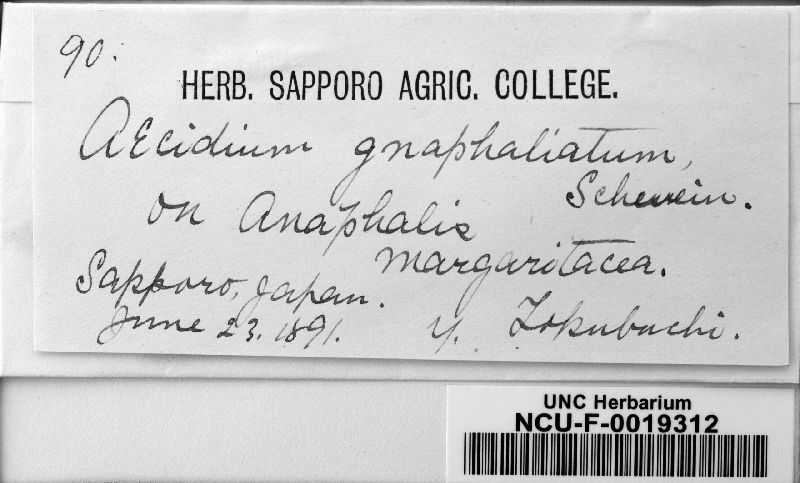 90.
HERB. SAPPORO AGRIC. COLLEGE.
AEcidium gnaphaliatum,
Schwein.
on Anaphalis
margaritacea.
Sapporo, Japan.
June 23. 1891. Y. Tokubuchi.
UNC Herbarium
NCU-F-0019312